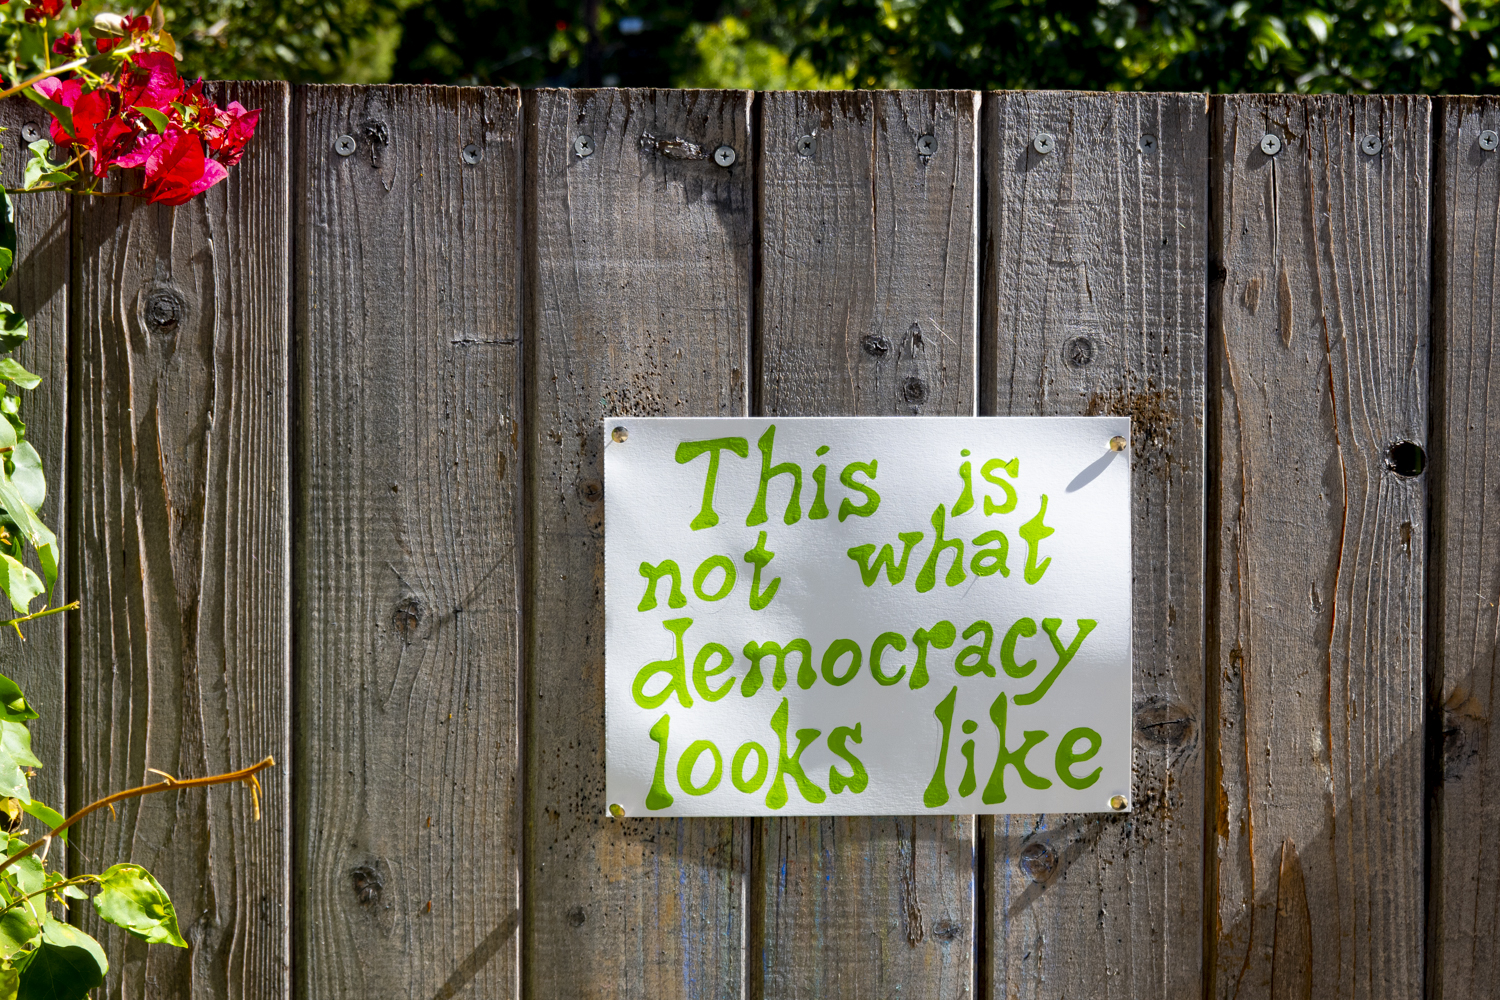 This is
not what
democracy
looks like